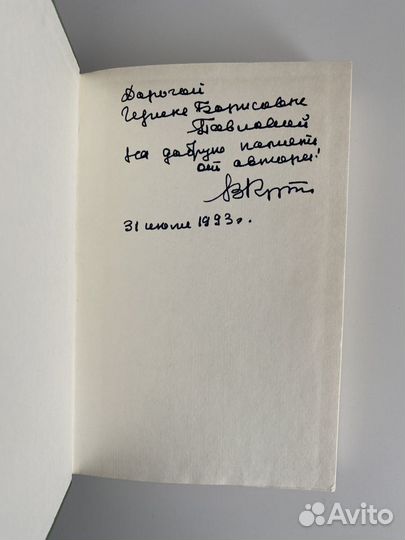 Дорогой
Борисовне
Павловой
На добрую память
от автора!
31 июля 1993 г.
Avito